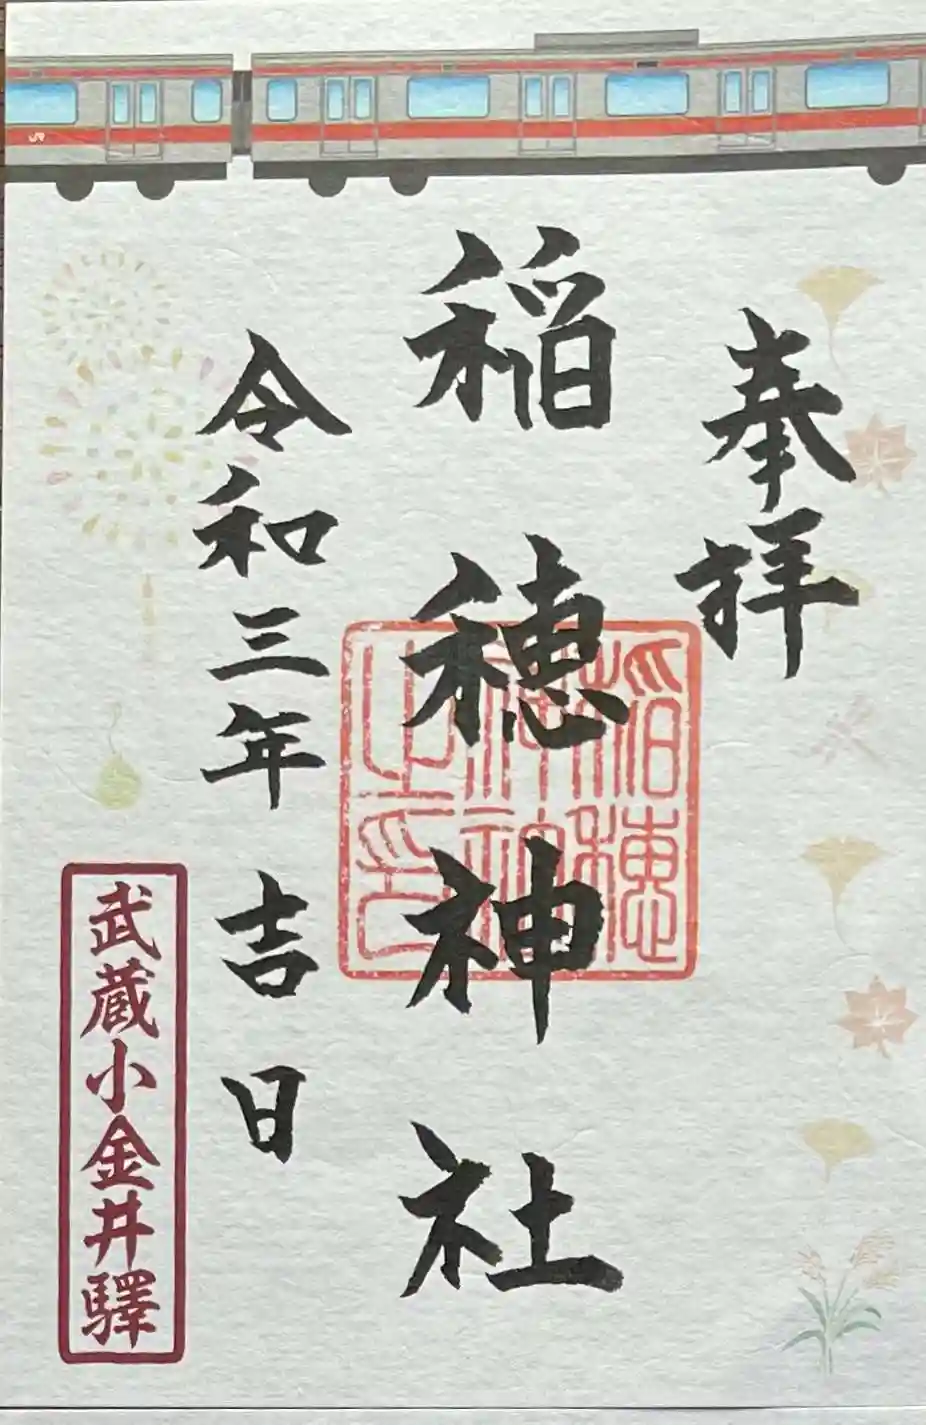 奉拝
稲穂神社
稲穂神社之印
令和三年 吉日
武蔵小金井驛
JR